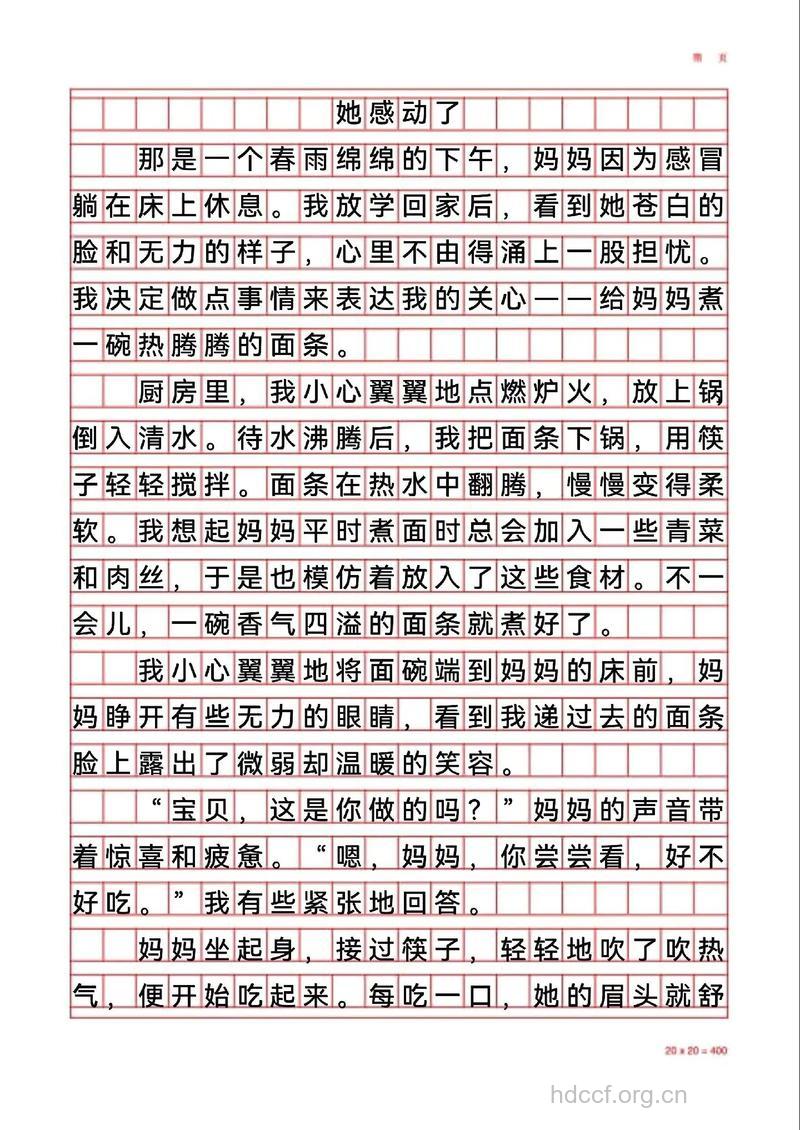 第 页
她感动了
那是一个春雨绵绵的下午，妈妈因为感冒
躺在床上休息。我放学回家后，看到她苍白的
脸和无力的样子，心里不由得涌上一股担忧。
我决定做点事情来表达我的关心——给妈妈煮
一碗热腾腾的面条。
厨房里，我小心翼翼地点燃炉火，放上锅，
倒入清水。待水沸腾后，我把面条下锅，用筷
子轻轻搅拌。面条在热水中翻腾，慢慢变得柔
软。我想起妈妈平时煮面时总会加入一些青菜
和肉丝，于是也模仿着放入了这些食材。不一
会儿，一碗香气四溢的面条就煮好了。
我小心翼翼地将面碗端到妈妈的床前，妈
妈睁开有些无力的眼睛，看到我递过去的面条，
脸上露出了微弱却温暖的笑容。
“宝贝，这是你做的吗？”妈妈的声音带
着惊喜和疲惫。“嗯，妈妈，你尝尝看，好不
好吃。”我有些紧张地回答。
妈妈坐起身，接过筷子，轻轻地吹了吹热
气，便开始吃起来。每吃一口，她的眉头就舒
20 x 20 = 400
hdccf.org.cn